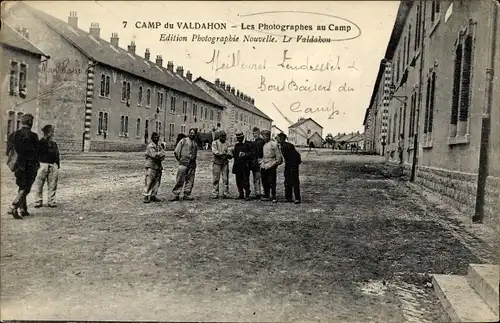 7 CAMP du VALDAHON — Les Photographes au Camp
Edition Photographie Nouvelle. Le Valdahon
Meilleur
Bons Baisers des
Camp.